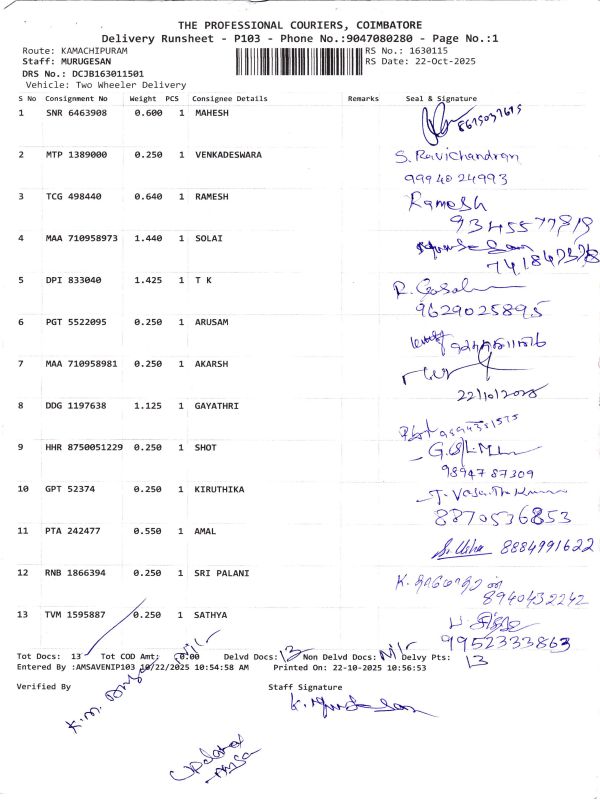 THE PROFESSIONAL COURIERS, COIMBATORE
Delivery Runsheet - P103 - Phone No.:9047080280 - Page No.:1
Route: KAMACHIPURAM RS No.: 1630115
Staff: MURUGESAN RS Date: 22-Oct-2025
DRS No.: DCJB163011501
Vehicle: Two Wheeler Delivery
S No Consignment No Weight PCS Consignee Details Remarks Seal & Signature
1 SNR 6463908 0.600 1 MAHESH
2 MTP 1389000 0.250 1 VENKADESWARA S. Ravichandran
9994024993
3 TCG 498440 0.640 1 RAMESH Ramesh
9345577819
4 MAA 710958973 1.440 1 SOLAI
5 DPI 833040 1.425 1 T K
9629025895
6 PGT 5522095 0.250 1 ARUSAM
7 MAA 710958981 0.250 1 AKARSH
22/10/2025
8 DDG 1197638 1.125 1 GAYATHRI
9 HHR 8750051229 0.250 1 SHOT
9894787309
10 GPT 52374 0.250 1 KIRUTHIKA
8870536853
11 PTA 242477 0.550 1 AMAL S. Usha 8884991622
12 RNB 1866394 0.250 1 SRI PALANI K.
8940432242
13 TVM 1595887 0.250 1 SATHYA
9952333863
Tot Docs: 13 Tot COD Amt: 0.00 Delvd Docs: 13 Non Delvd Docs: Nil Delvy Pts: 13
Entered By :AMSAVENIP103 10/22/2025 10:54:58 AM Printed On: 22-10-2025 10:56:53
Verified By Staff Signature
Updated